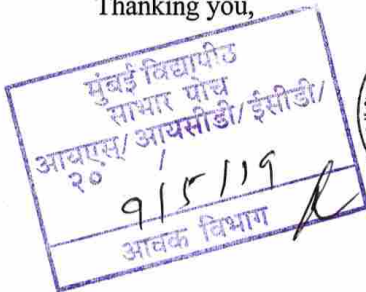 Thanking you,
मुंबई विद्यापीठ
साभार पोच
आयएस/ आयसीडी/ ईसीडी/
२० /
9/5/19
आवक विभाग